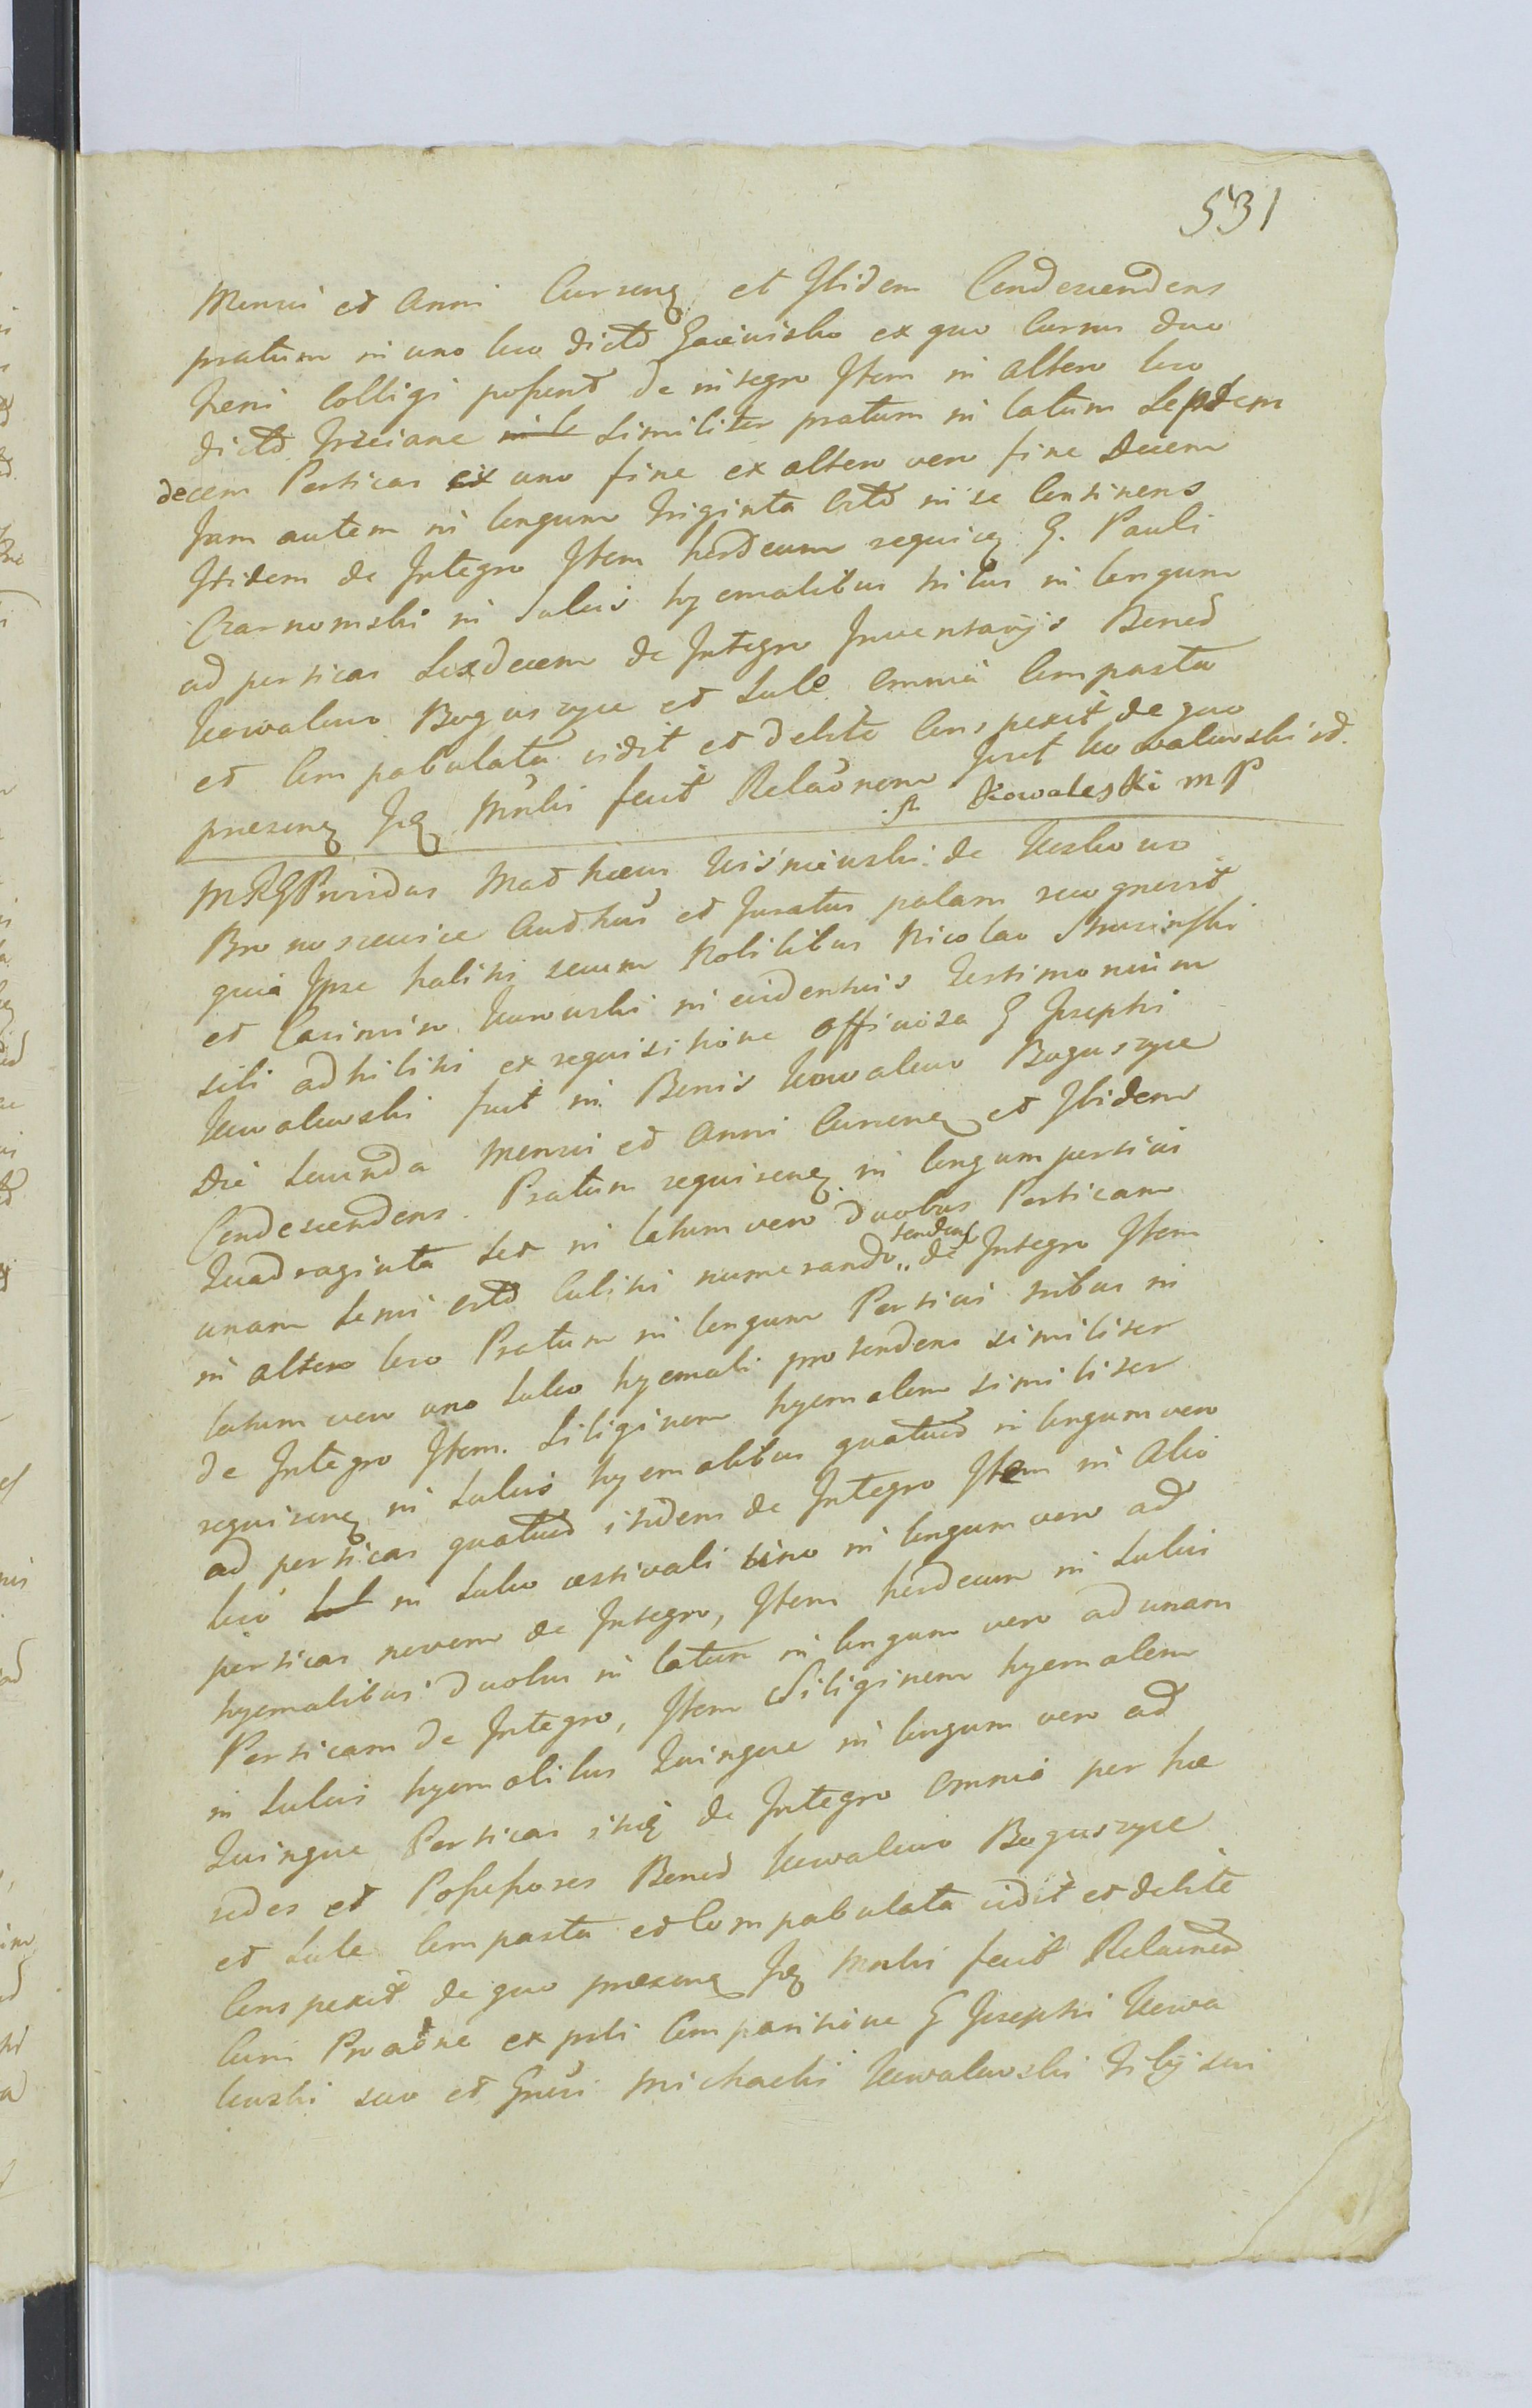 531
Mensis et Anni Cursenq et Ibidem Condescendens
pratum in uno loco dicto ex quo Currus duo
heni Colligi possent de integro Item in altero loco
dicto Trzciane similiter pratum in latum Septem
decem Perticas ex uno fine ex altero vero fine Decem
Jam autem in longum triginta octo in se Continens
Itidem de Integro Item hordeum requisq G. Pauli
Czarnomski in Sulcis hyemalibus tribus in longum
ad perticas Sexdecem de Integro Inventarijs Bonod
Kowalewo Boguszyce et Sulc omnia Compasta
et Com pabulata vidit et debite Conspexit de quo
presenq Jq Mnlis fecit Relaonem Jozef Kowalewski sd.
Kowaleski mP
MRG Providus Mathaeus Wiśniewski de
Audhus et Juratus palam recognovit
quia Ipse habitis secum Nobilibus Nicolao
et Casimiro in evidentius Testimonium
sibi adhibitis ex requisitione officiosa G Josephi
Kowalewski fuit in Bonis Kowalewo Boguszyce
Die Secunda Mensis et Anni Cursenq et Ibidem
Condescendens Pratum requisenq in longum perticis
Quadraginta Sex in latum vero duobus Perticam
unam Semi octo Cubitis numerando tendens de Integro Item
in altero loco Pratum in longum Perticis tribus in
latum vero uno Sulco hyemali protendens similiter
de Integro Item Siliginem hyemalem similiter
requisenq in Sulcis hyemalibus quatuor in longum vero
ad perticas quatuor itidem de Integro Item in Alio
loco Sul in Sulco aestivali uno in longum vero ad
perticas novem de Integro, Item hordeum in Sulcis
hyemalibus duobus in latum in longum vero ad unam
Perticam de Integro, Item Siliginem hyemalem
in Sulcis hyemalibus Quinque in longum vero ad
Quinque Perticas itiq de Integro omnia per hae
redes et Possessores Bonod Kowalewo Boguszyce
et Sule Compasta et Compabulata vidit et debite
Conspexit de quo praesenq Jq Mnlis fecit Relaonem
Cum Proaone ex psti Comparitione G Josephi Kowa
lewski suo et Gnosi Michaelis Kowalewski filij sui